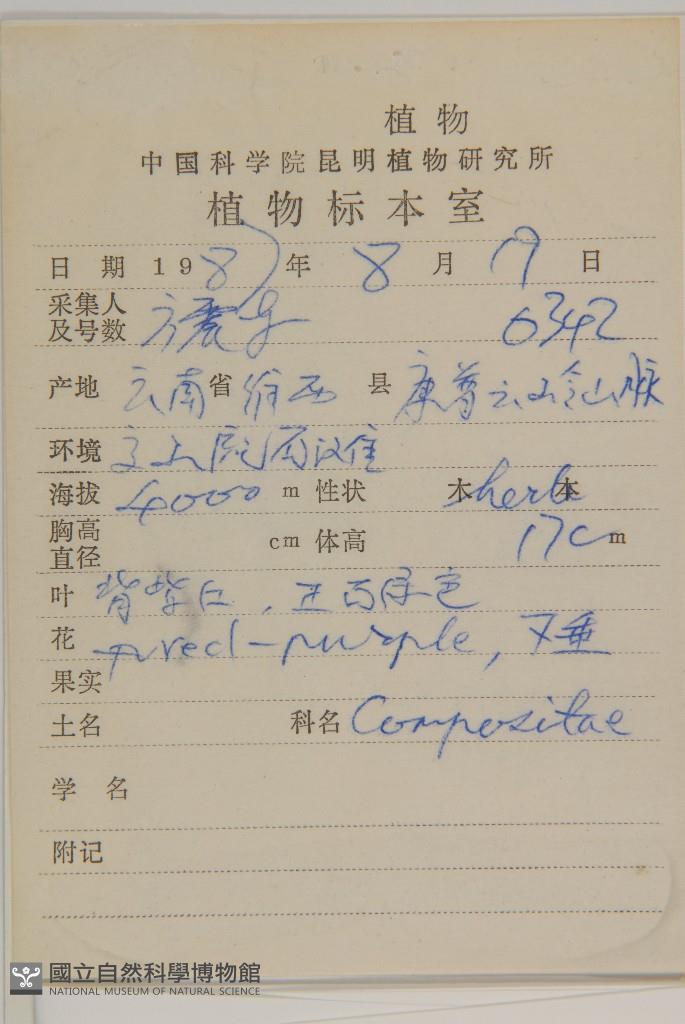 植物
中国科学院昆明植物研究所
植物标本室
日期 1987年 8月 19日
采集人及号数 方震东 0342
产地 云南省 维西 县 山脉
环境
海拔 4000 m 性状 木 herb 本
胸高直径 cm 体高 17c m
叶 背紫红,正面绿色
花 red-purple, 下垂
果实
土名 科名 Compositae
学名
附记
國立自然科學博物館
NATIONAL MUSEUM OF NATURAL SCIENCE